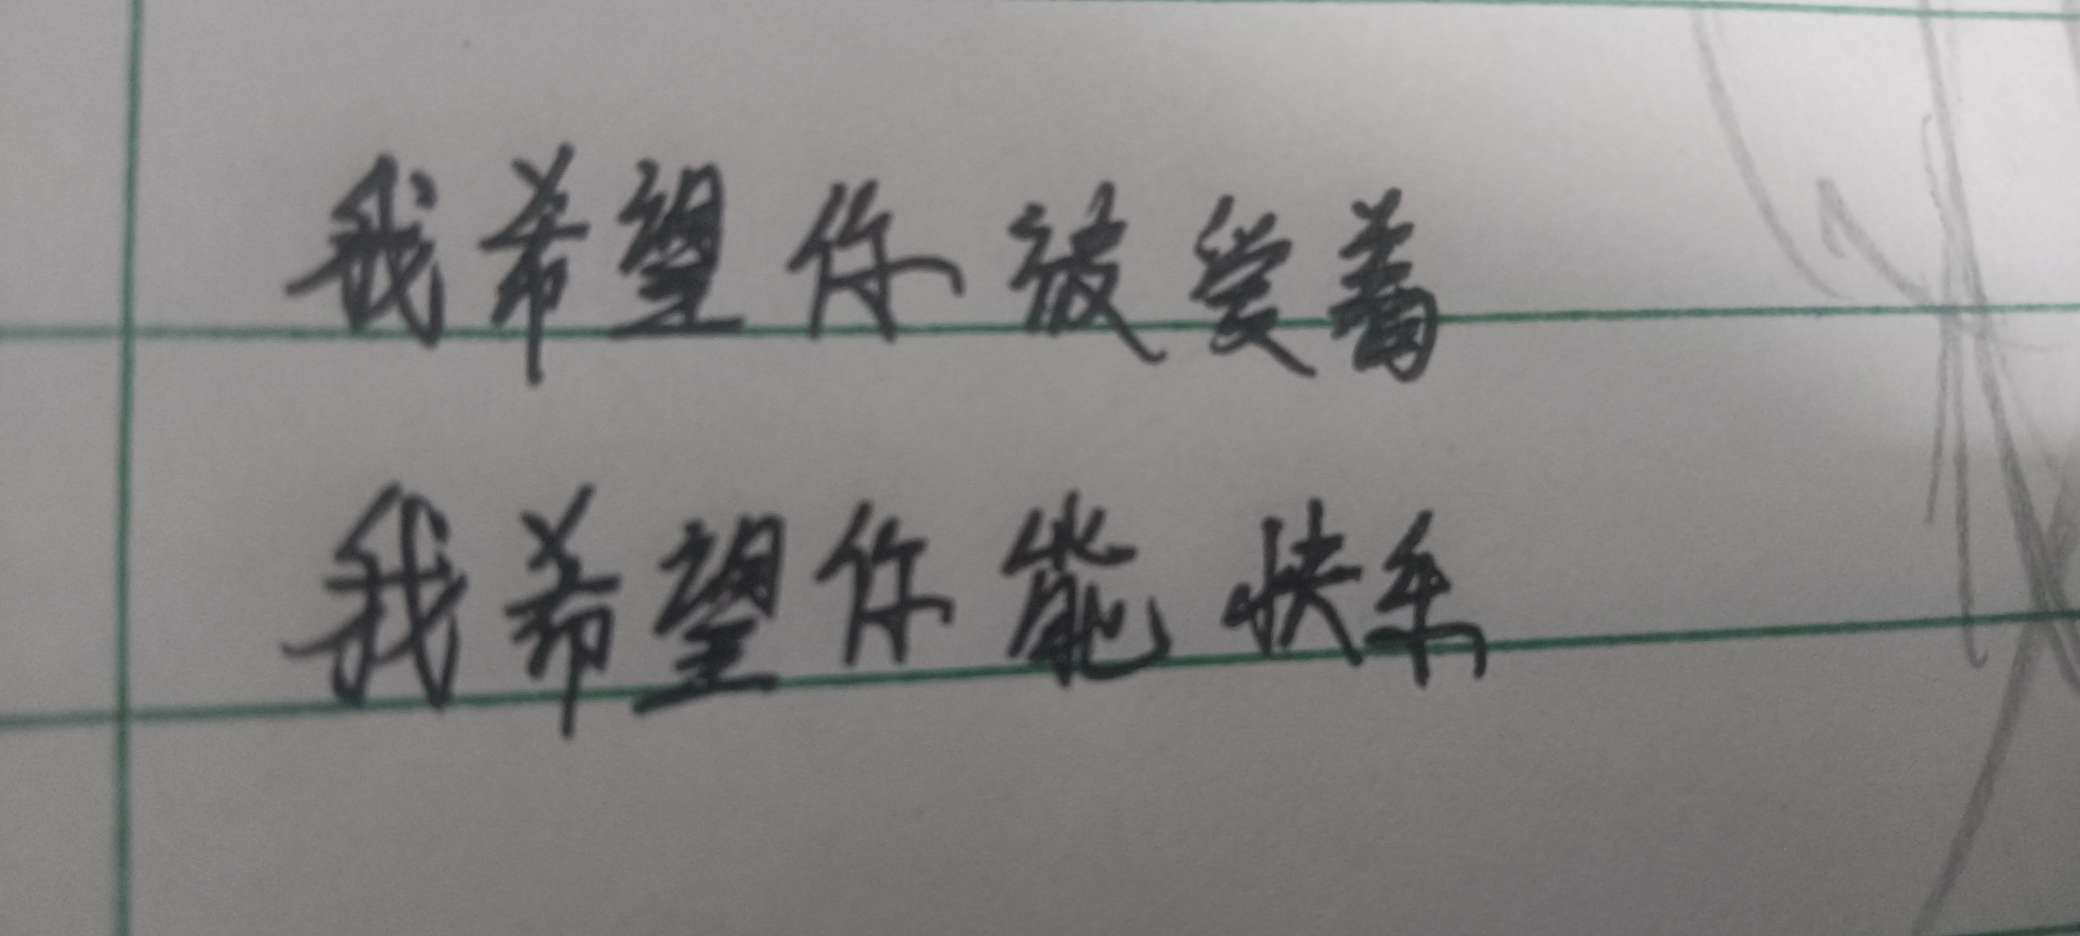 我希望你被爱着
我希望你能快乐